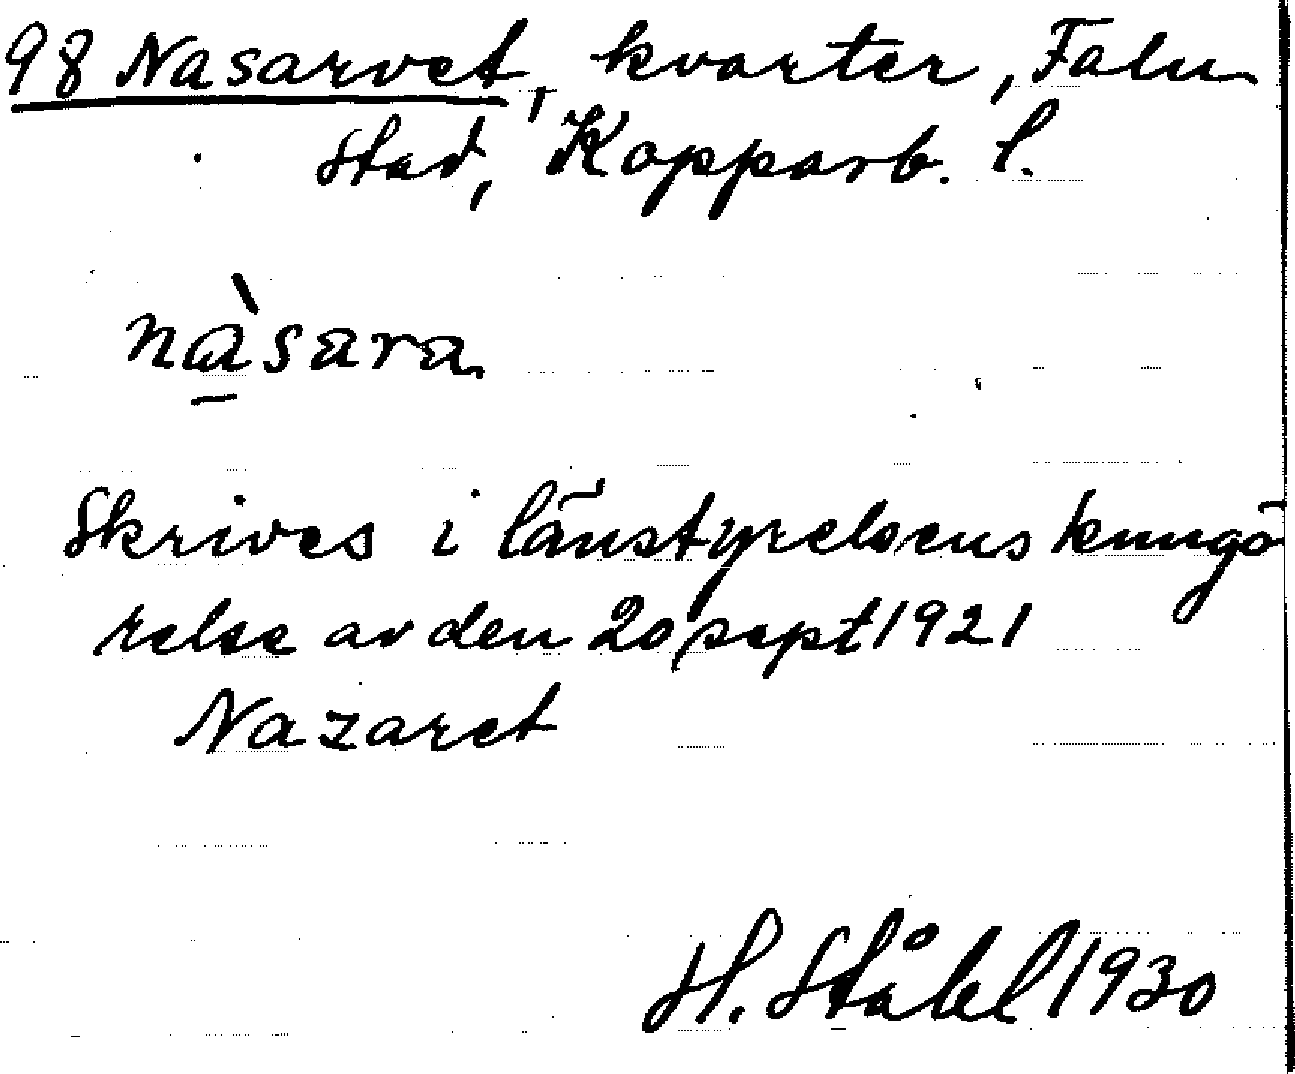 98 Nasarvet, kvarter, Falu
stad, Kopparb. l.
nàsara
Skrives i länstyrelsens kungö
relse av den 20 sept 1921
Nazaret
H. Ståhl 1930